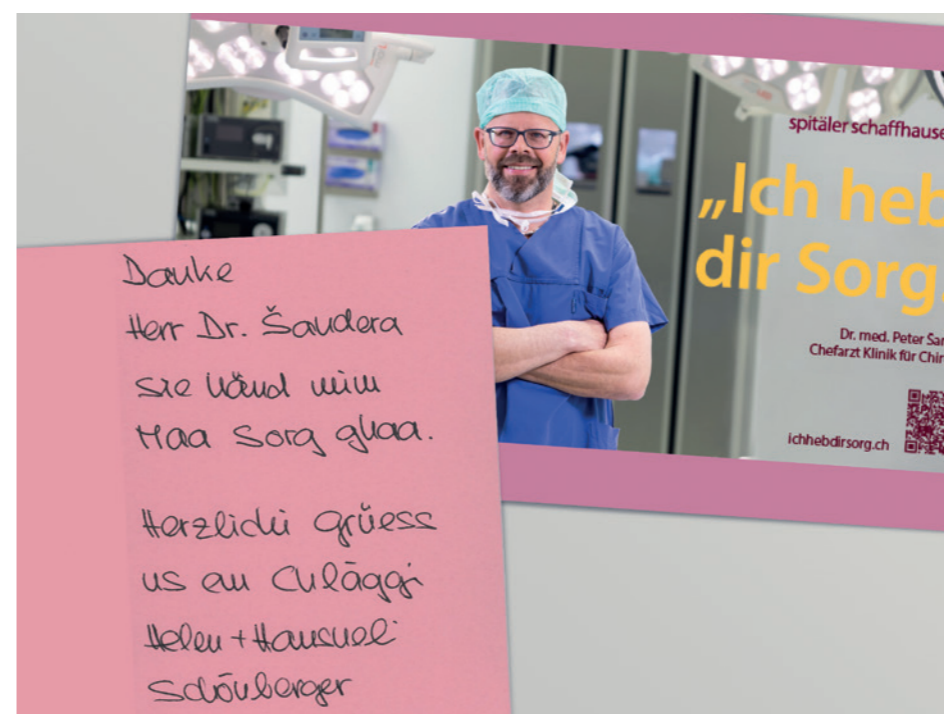 spitäler schaffhause
„Ich heb
dir Sorg
Dr. med. Peter Šan
Chefarzt Klinik für Chir
ichhebdirsorg.ch
Danke
Herr Dr. Šandera
sie händ mim
Maa Sorg ghaa.
Herzlichi Grüess
us em Chläggi
Helen + Hansueli
Schönberger